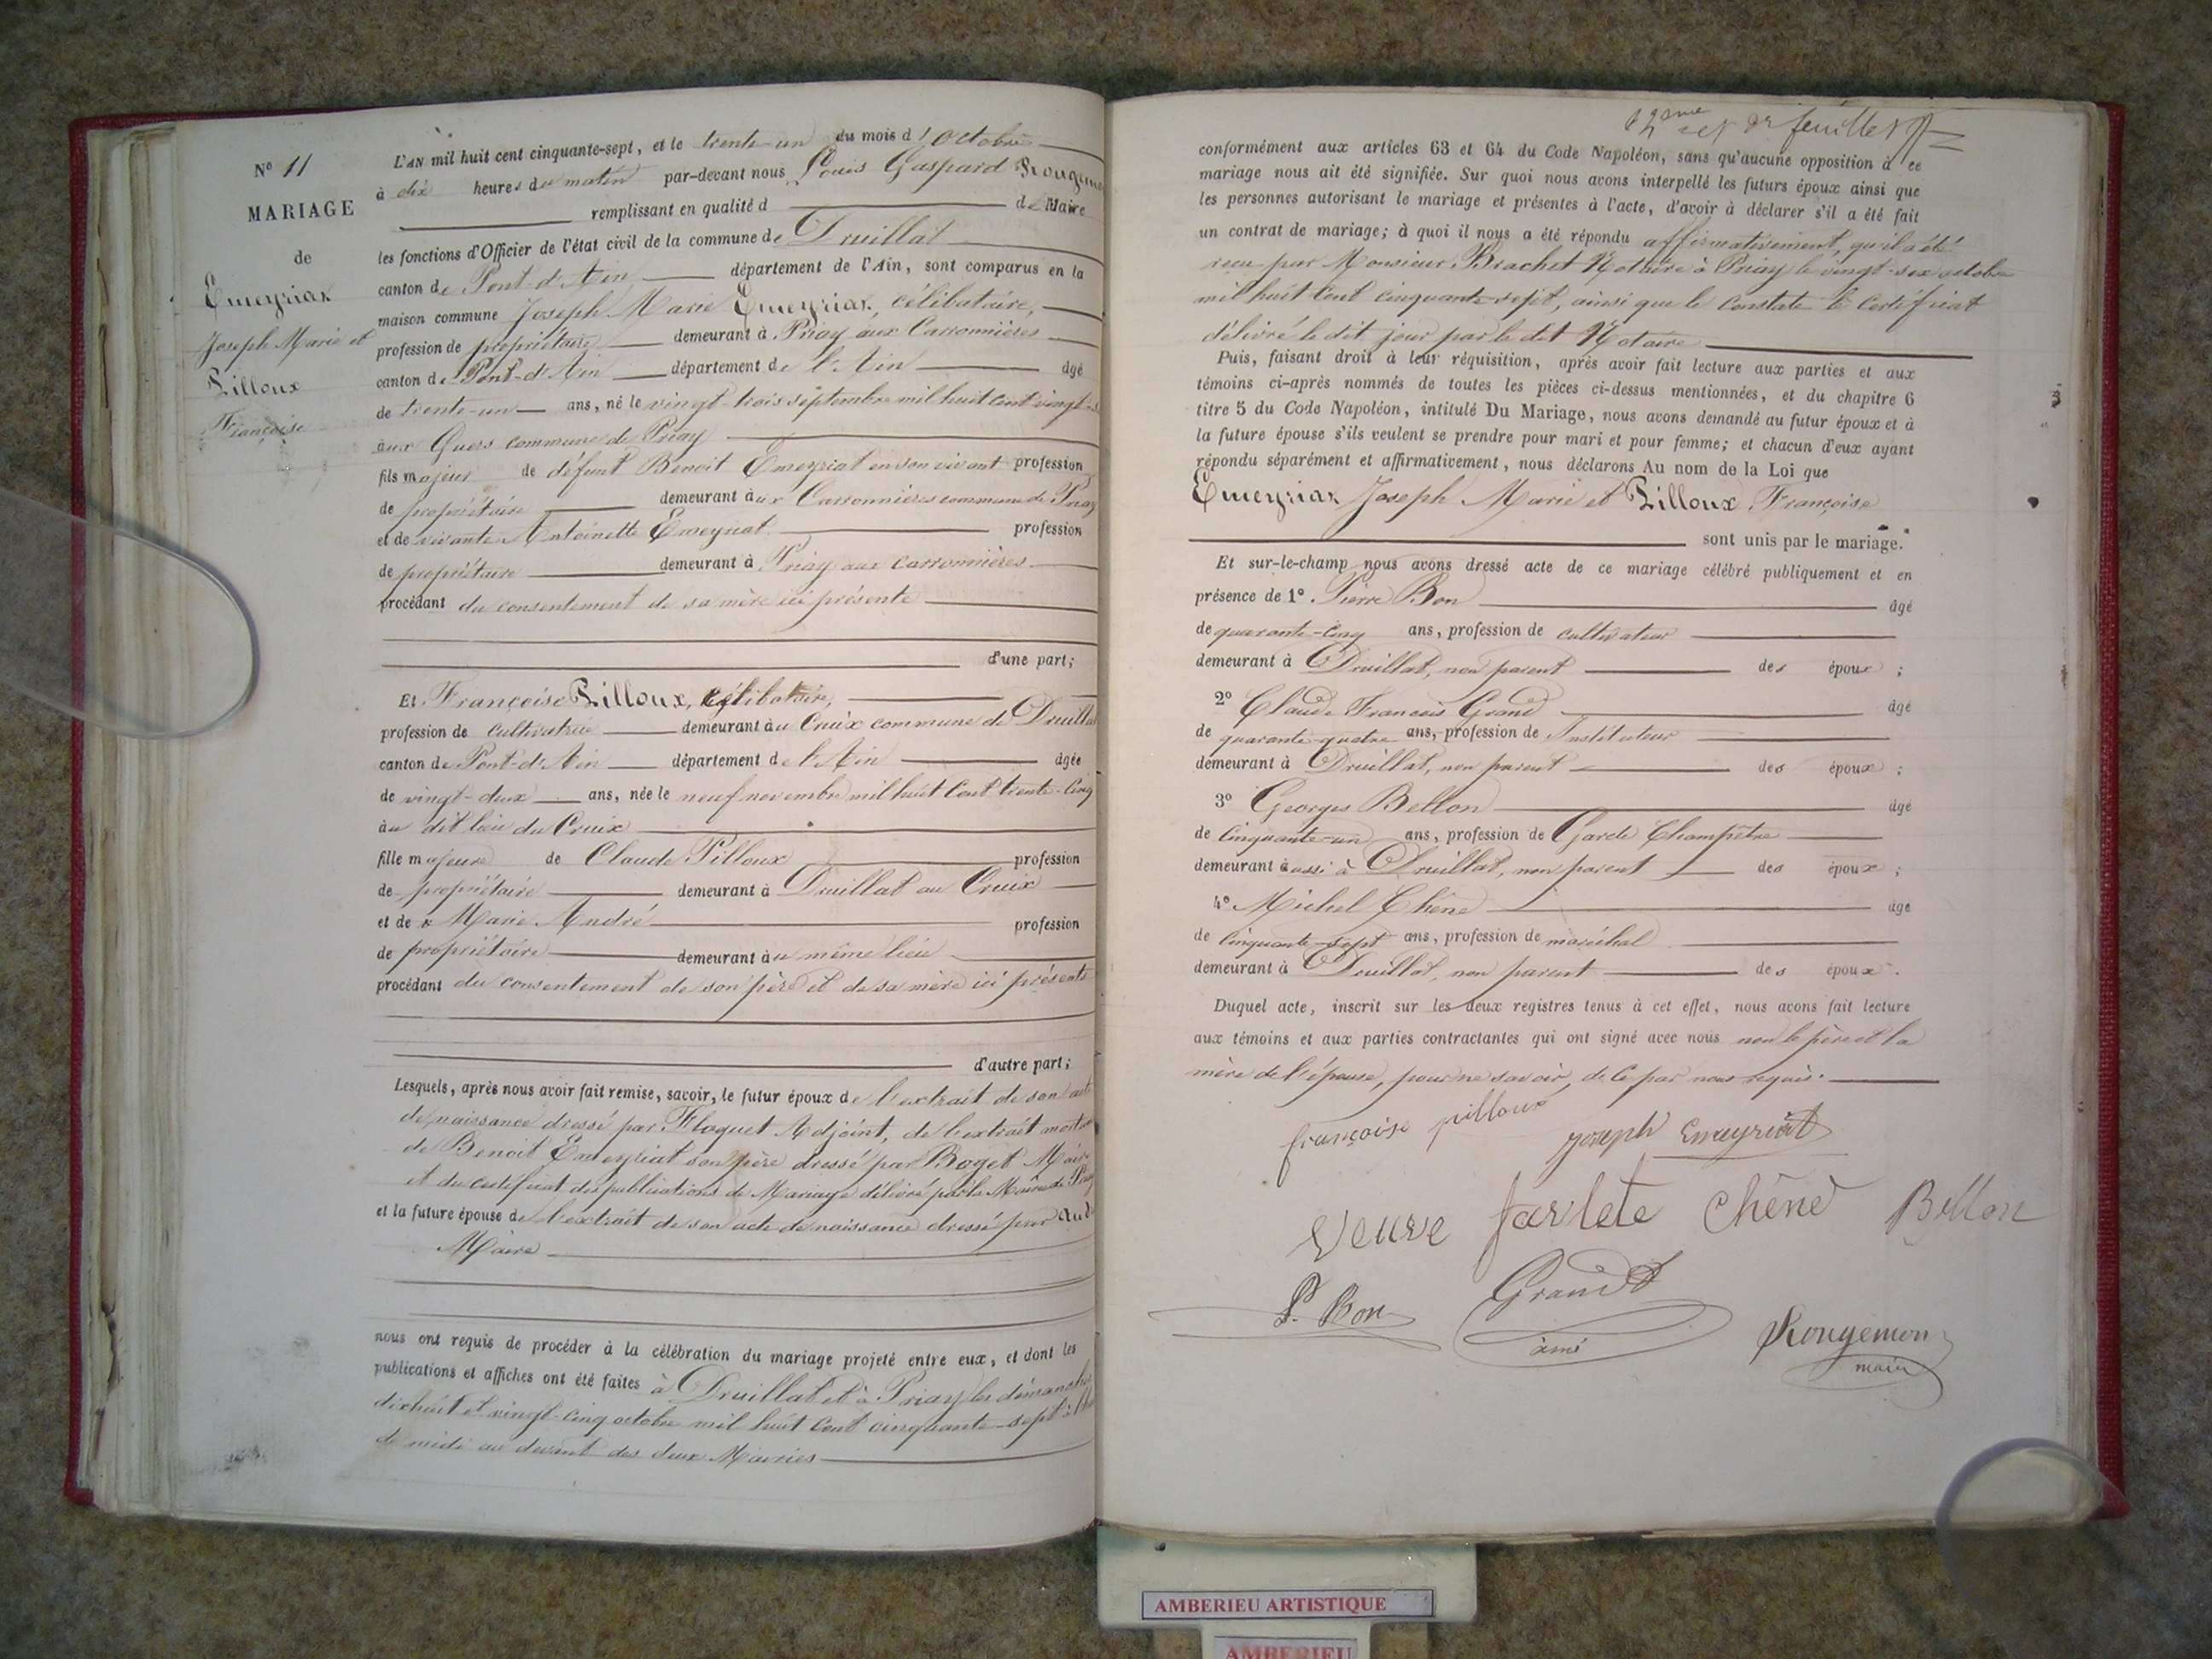 N° 11
MARIAGE
de
Emeyriat
Joseph Marie et
Pilloux
Françoise
L'AN mil huit cent cinquante-sept, et le trente-un du mois d'Octobre
à dix heures du matin par-devant nous Louis Gaspard
remplissant en qualité d de Maire
les fonctions d'Officier de l'état civil de la commune de Druillat
canton de Pont-d'Ain département de l'Ain, sont comparus en la
maison commune Joseph Marie Emeyriat, célibataire,
profession de propriétaire demeurant à Priay aux Carronnières
canton de Pont-d'Ain département de l'Ain âgé
de trente-un ans, né le vingt-trois septembre mil huit cent vingt-
aux Guers commune de Priay
fils majeur de défunt Benoit Emeyriat en son vivant profession
de propriétaire demeurant aux Carronnières commune de Priay
et de vivante Antoinette Emeyriat profession
de propriétaire demeurant à Priay aux Carronnières
procédant du consentement de sa mère ici présente
d'une part;
Et Françoise Pilloux, célibataire,
profession de cultivatrice demeurant au Cruix commune de Druillat
canton de Pont-d'Ain département de l'Ain âgée
de vingt-deux ans, née le neuf novembre mil huit cent trente-cinq
au dit lieu du Cruix
fille majeure de Claude Pilloux profession
de propriétaire demeurant à Druillat au Cruix
et de Marie André profession
de propriétaire demeurant au même lieu
procédant du consentement de son père et de sa mère ici présents
d'autre part;
Lesquels, après nous avoir fait remise, savoir, le futur époux de l'extrait de son acte
de naissance dressé par Floquet Adjoint, de l'extrait mortuaire
de Benoit Emeyriat son père dressé par Boget Maire
et du certificat des publications de Mariage délivré par le Maire de Priay
et la future épouse de l'extrait de son acte de naissance dressé par
Maire
nous ont requis de procéder à la célébration du mariage projeté entre eux, et dont les
publications et affiches ont été faites à Druillat et à Priay les dimanches
dix huit et vingt-cinq octobre mil huit cent cinquante-sept à
de midi au devant des deux Mairies
12eme et dr feuillet
conformément aux articles 63 et 64 du Code Napoléon, sans qu'aucune opposition à ce
mariage nous ait été signifiée. Sur quoi nous avons interpellé les futurs époux ainsi que
les personnes autorisant le mariage et présentes à l'acte, d'avoir à déclarer s'il a été fait
un contrat de mariage; à quoi il nous a été répondu affirmativement, qu'il a été
reçu par Monsieur Brachet Notaire à Priay le vingt-six octobre
mil huit cent cinquante sept, ainsi que le constate le certificat
délivré le dit jour par le dit Notaire
Puis, faisant droit à leur réquisition, après avoir fait lecture aux parties et aux
témoins ci-après nommés de toutes les pièces ci-dessus mentionnées, et du chapitre 6
titre 5 du Code Napoléon, intitulé Du Mariage, nous avons demandé au futur époux et à
la future épouse s'ils veulent se prendre pour mari et pour femme; et chacun d'eux ayant
répondu séparément et affirmativement, nous déclarons Au nom de la Loi que
Emeyriat Joseph Marie et Pilloux Françoise
sont unis par le mariage.
Et sur-le-champ nous avons dressé acte de ce mariage célébré publiquement et en
présence de 1° Pierre Bon âgé
de quarante-cinq ans, profession de cultivateur
demeurant à Druillat, non parent des époux ;
2° Claude François Grand âgé
de quarante-quatre ans, profession de Instituteur
demeurant à Druillat, non parent des époux ;
3° Georges Bellon âgé
de cinquante-un ans, profession de Garde Champêtre
demeurant aussi à Druillat, non parent des époux ;
4° Michel Chêne âgé
de cinquante-sept ans, profession de maréchal
demeurant à Druillat, non parent des époux.
Duquel acte, inscrit sur les deux registres tenus à cet effet, nous avons fait lecture
aux témoins et aux parties contractantes qui ont signé avec nous non le père et la
mère de l'épouse, pour ne savoir, de ce par nous requis.
françoise pilloux joseph Emeyriat
veuve Chêne Bellon
P. Bon Grand
ainé
Rougemon
maire
AMBERIEU ARTISTIQUE
AMBERIEU